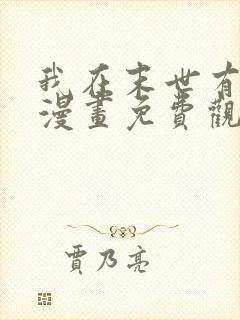 我在末世有
漫畫免費觀
賈乃亮